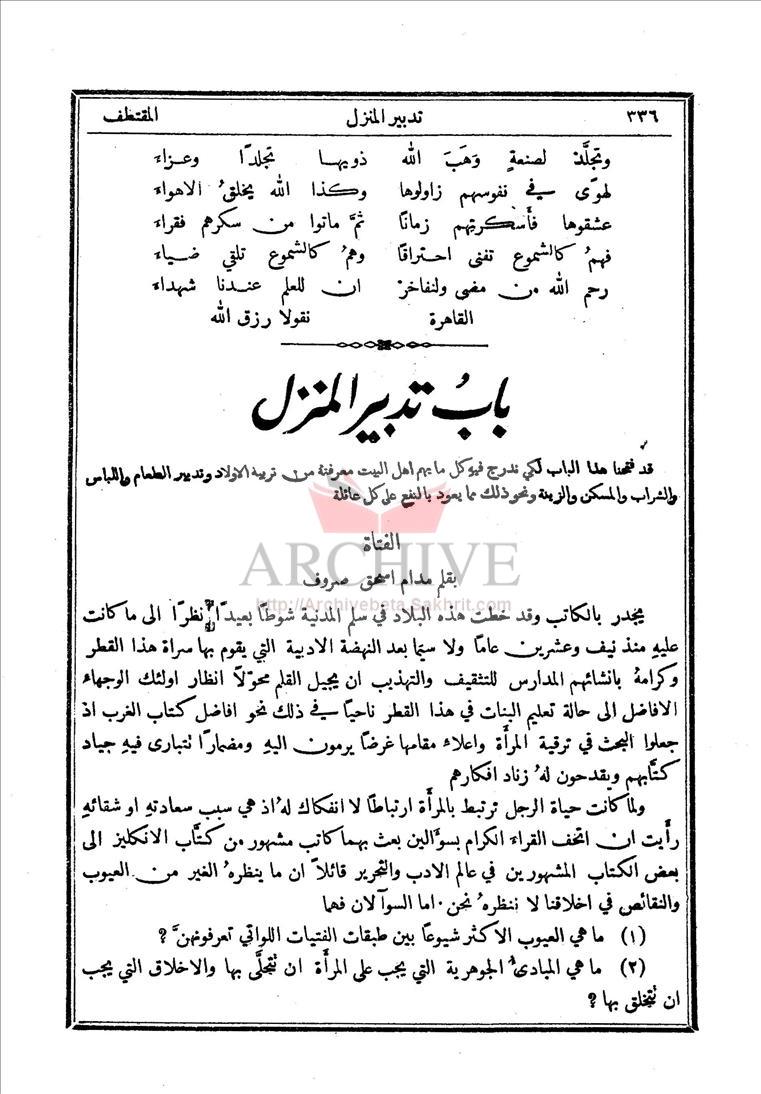 ٣٣٦ تدبير المنزل المقتطف
وتجلَّد لصنعةٍ وَهَبَ الله ذويها تجلدًا وعزاء
لهوًى في نفوسهم زاولوها وكذا الله يخلقُ الاهواء
عشقوها فأسكرتهم زمانًا ثمَّ ماتوا من سكرهم فقراء
فهمُ كالشموع تفنى احتراقًا وهمُ كالشموع تلقي ضياء
رحم الله من مضى ولنفاخرْ ان للعلم عندنا شهداء
القاهرة نقولا رزق الله
بابُ تدبير المنزل
قد فتحنا هذا الباب لكي ندرج فيه كل ما يهم اهل البيت معرفته من تربية الاولاد وتدبير الطعام واللباس
والشراب والمسكن والزينة ونحو ذلك مما يعود بالنفع على كل عائلة
الفتاة
بقلم مدام اسحق صروف
ARCHIVE
http://Archivebeta.Sakhrit.com
يجدر بالكاتب وقد خطت هذه البلاد في سلم المدنية شوطًا بعيدًا نظرًا الى ما كانت
عليهِ منذ نيف وعشرين عامًا ولا سيما بعد النهضة الادبية التي يقوم بها سراة هذا القطر
وكرامهُ بانشائهم المدارس للتثقيف والتهذيب ان يجيل القلم محوّلاً انظار اولئك الوجهاء
الافاضل الى حالة تعليم البنات في هذا القطر ناحيًا في ذلك نحو افاضل كتاب الغرب اذ
جعلوا البحث في ترقية المرأة واعلاء مقامها غرضًا يرمون اليهِ ومضمارًا تتبارى فيهِ جياد
كتَّابهم ويقدحون لهُ زناد افكارهم
ولما كانت حياة الرجل ترتبط بالمرأة ارتباطًا لا انفكاك لهُ اذ هي سبب سعادتهِ او شقائهِ
رأيت ان اتحف القراء الكرام بسؤالين بعث بهما كاتب مشهور من كتَّاب الانكليز الى
بعض الكتاب المشهورين في عالم الادب والتحرير قائلاً ان ما ينظرهُ الغير من العيوب
والنقائص في اخلاقنا لا ننظرهُ نحن. اما السوآلان فهما
(١) ما هي العيوب الاكثر شيوعًا بين طبقات الفتيات اللواتي تعرفونهنَّ ؟
(٢) ما هي المبادئُ الجوهرية التي يجب على المرأة ان تتجلَّى بها والاخلاق التي يجب
ان تتخلق بها ؟